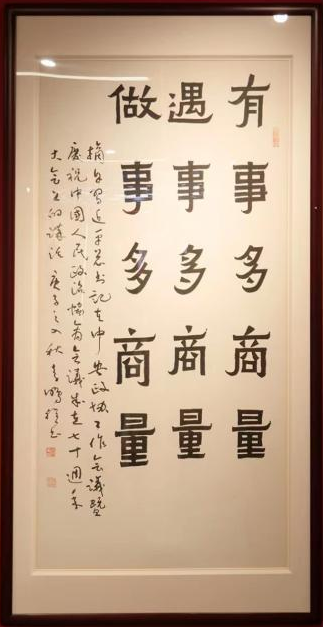 有事多商量
遇事多商量
做事多商量
摘自習近平总书记在中央政协工作会議暨
慶祝中國人民政治協商會議成立七十週年
大会上的講话 庚子之秋